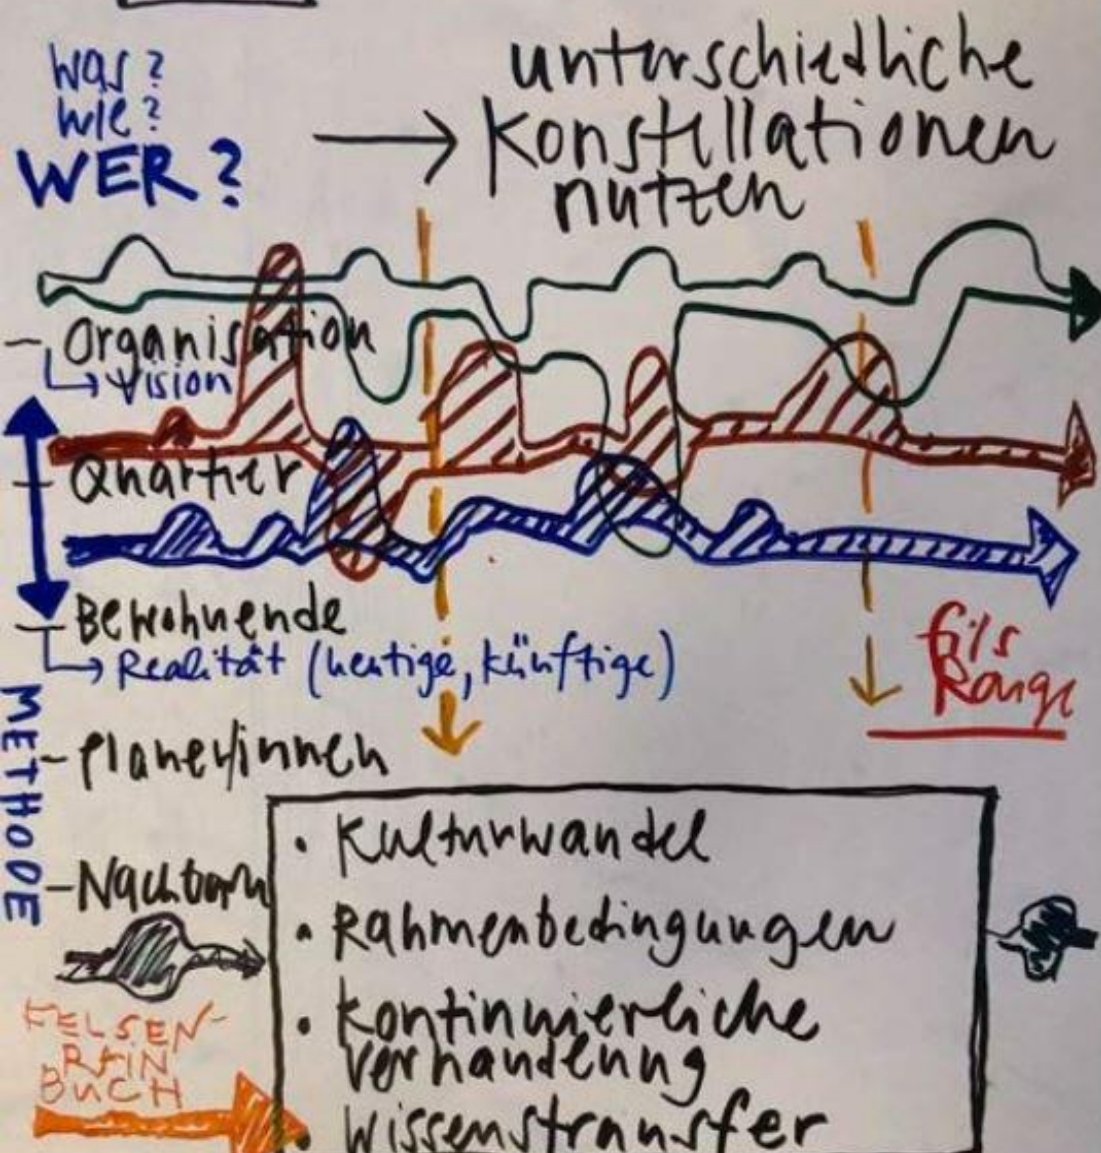 Was?
Wie?
WER?
unterschiedliche
Konstellationen
nutzen
- Organisation
Vision
- Quartier
- Bewohnende
Realität (heutige, künftige)
METHODE
- Planer/innen
- Nachbarn
FELSEN-
RAIN
BUCH
• Kulturwandel
• Rahmenbedingungen
• Kontinuierliche
Verhandlung
• Wissenstransfer